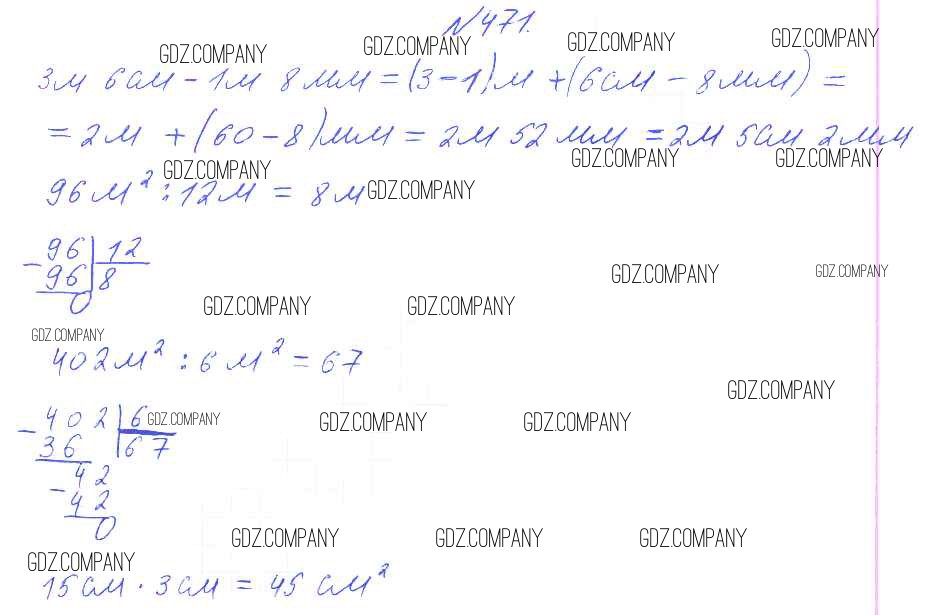 №471.
GDZ.COMPANY GDZ.COMPANY GDZ.COMPANY GDZ.COMPANY
3м 6см - 1м 8мм = (3-1)м + (6см - 8мм) =
= 2м + (60-8)мм = 2м 52мм = 2м 5см 2мм
GDZ.COMPANY GDZ.COMPANY GDZ.COMPANY GDZ.COMPANY
96м² : 12м = 8м
- 96 | 12
96 | 8
0
GDZ.COMPANY GDZ.COMPANY
GDZ.COMPANY GDZ.COMPANY
GDZ.COMPANY
402м² : 6м² = 67
GDZ.COMPANY
- 402 | 6
GDZ.COMPANY GDZ.COMPANY GDZ.COMPANY
36 | 67
42
- 42
0
GDZ.COMPANY GDZ.COMPANY GDZ.COMPANY
GDZ.COMPANY
15см · 3см = 45см²